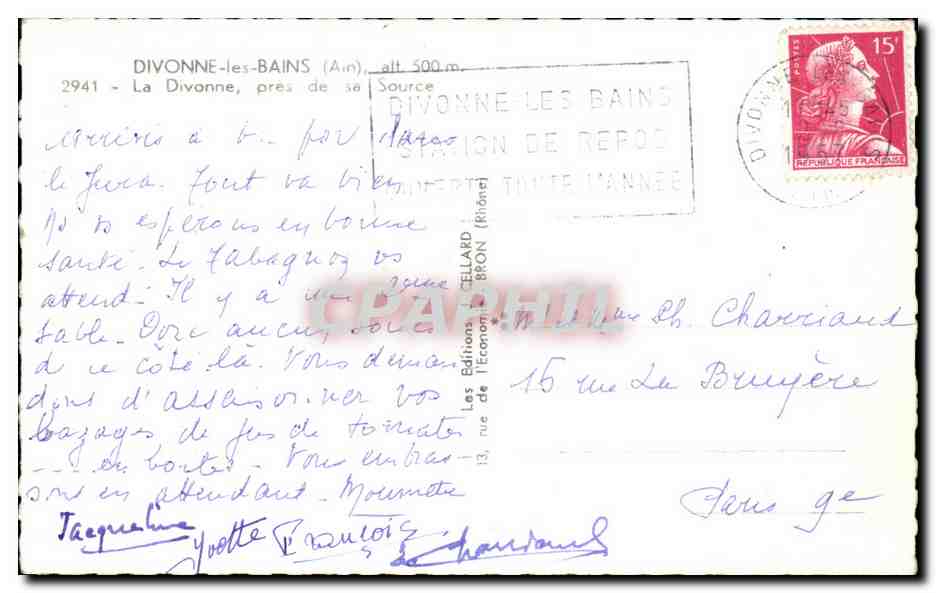 DIVONNE-les-BAINS (Ain), alt. 500 m.
2941 - La Divonne, près de sa Source
DIVONNE LES BAINS
STATION DE REPOS
OUVERTE TOUTE L'ANNÉE
POSTES
15F
RÉPUBLIQUE FRANÇAISE
DIVONNE LES
AIN
à par
le Jura. Tout va bien
espérons en bonne
santé. Le vs
attend. Il y a une
sable. Donc aucun souci
de ce côté là. Vous deman
dons d'assaisonner vos
bagages de jus de tomates
---- en boites. Vous embras-
sons en attendant.
Jacqueline
Yvotte François
Les Editions J. CELLARD
13, rue de l'Economie BRON (Rhône)
CPAPHIL
Ch. Charriaud
15 rue La Bruyère
Paris 9e